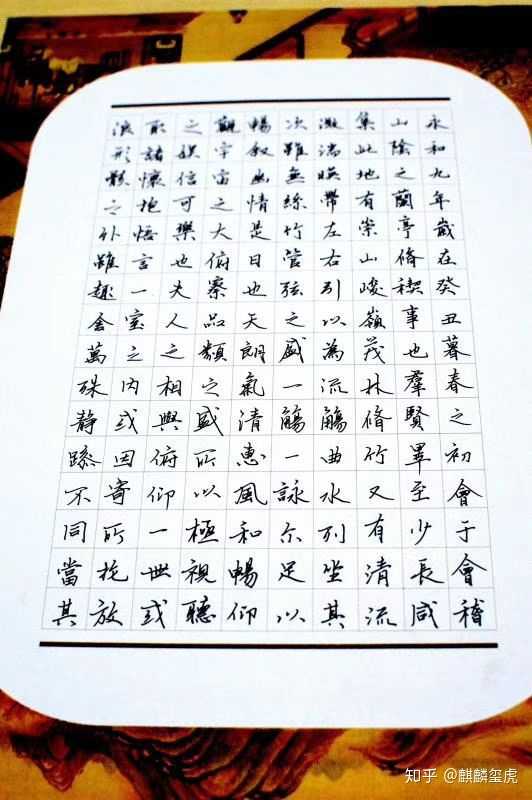 永和九年歲在癸丑暮春之初會于會稽
山陰之蘭亭脩稧事也羣賢畢至少長咸
集此地有崇山峻嶺茂林脩竹又有清流
激湍暎帶左右引以為流觴曲水列坐其
次雖無絲竹管弦之盛一觴一詠亦足以
暢叙幽情是日也天朗氣清惠風和暢仰
觀宇宙之大俯察品類之盛所以極視聽
之娛信可樂也夫人之相與俯仰一世或
取諸懷抱悟言一室之內或因寄所托放
浪形骸之外雖趣舍萬殊静躁不同當其
知乎 @麒麟玺虎